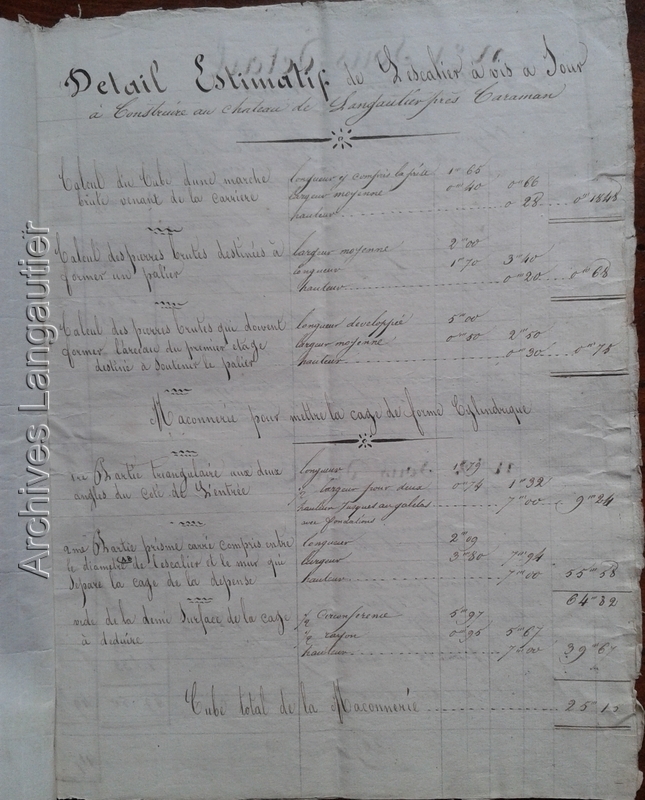 Detail Estimatif de L'escalier à vis a Jour
à Construire au chateau de Langautier près Caraman
Calcul du Cube d'une marche brute venant de la carriere
longueur y compris la 1m 65
largeur moyenne 0m 40 0m 66
hauteur 0m 28 0m 1848
Calcul des pierres brutes destinées à former un palier
largeur moyenne 2m 00
longueur 1m 70 3m 40
hauteur 0m 20 0m 68
Calcul des pierres brutes que doivent former l'arceau du premier étage destiné a soutenir le palier
longueur developpée 5m 00
largeur moyenne 0m 50 2m 50
hauteur 0m 30 0m 75
Maconnerie pour mettre la cage de forme Cylindrique
1re Partie triangulaire aux deux angles du coté de L'entrée
longueur 1m 79
1/2 largeur pour deux 0m 74 1m 32
hauteur jusques au galetas 7m 00 9m 24
avec fondations
2me Partie prisme carré compris entre le diametre de l'escalier et le mur que separe la cage de la depense
longueur 2m 09
largeur 3m 80 7m 94
hauteur 7m 00 55m 58
64m 82
vide de la demi surface de la cage à deduire
1/2 Circonference 5m 97
1/2 rayon 0m 95 5m 67
hauteur 7m 00 39m 67
Cube total de la Maconnerie 25 15
Archives Langautier